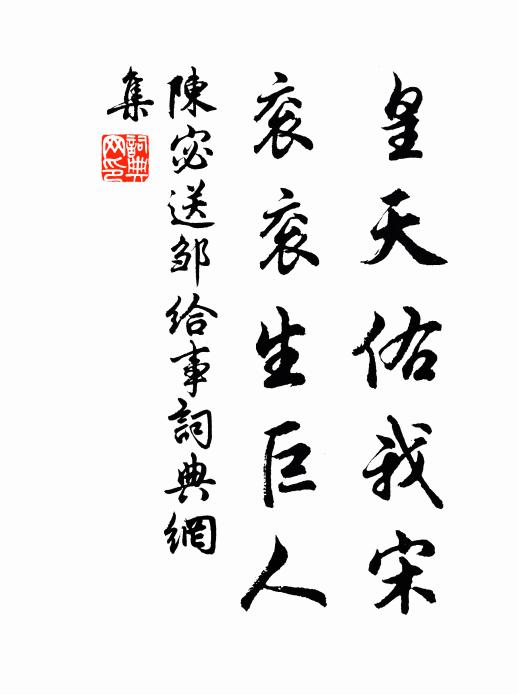 皇天佑我宋
衮衮生巨人
陳宓送邹給事詞典網
集
詞典
网印